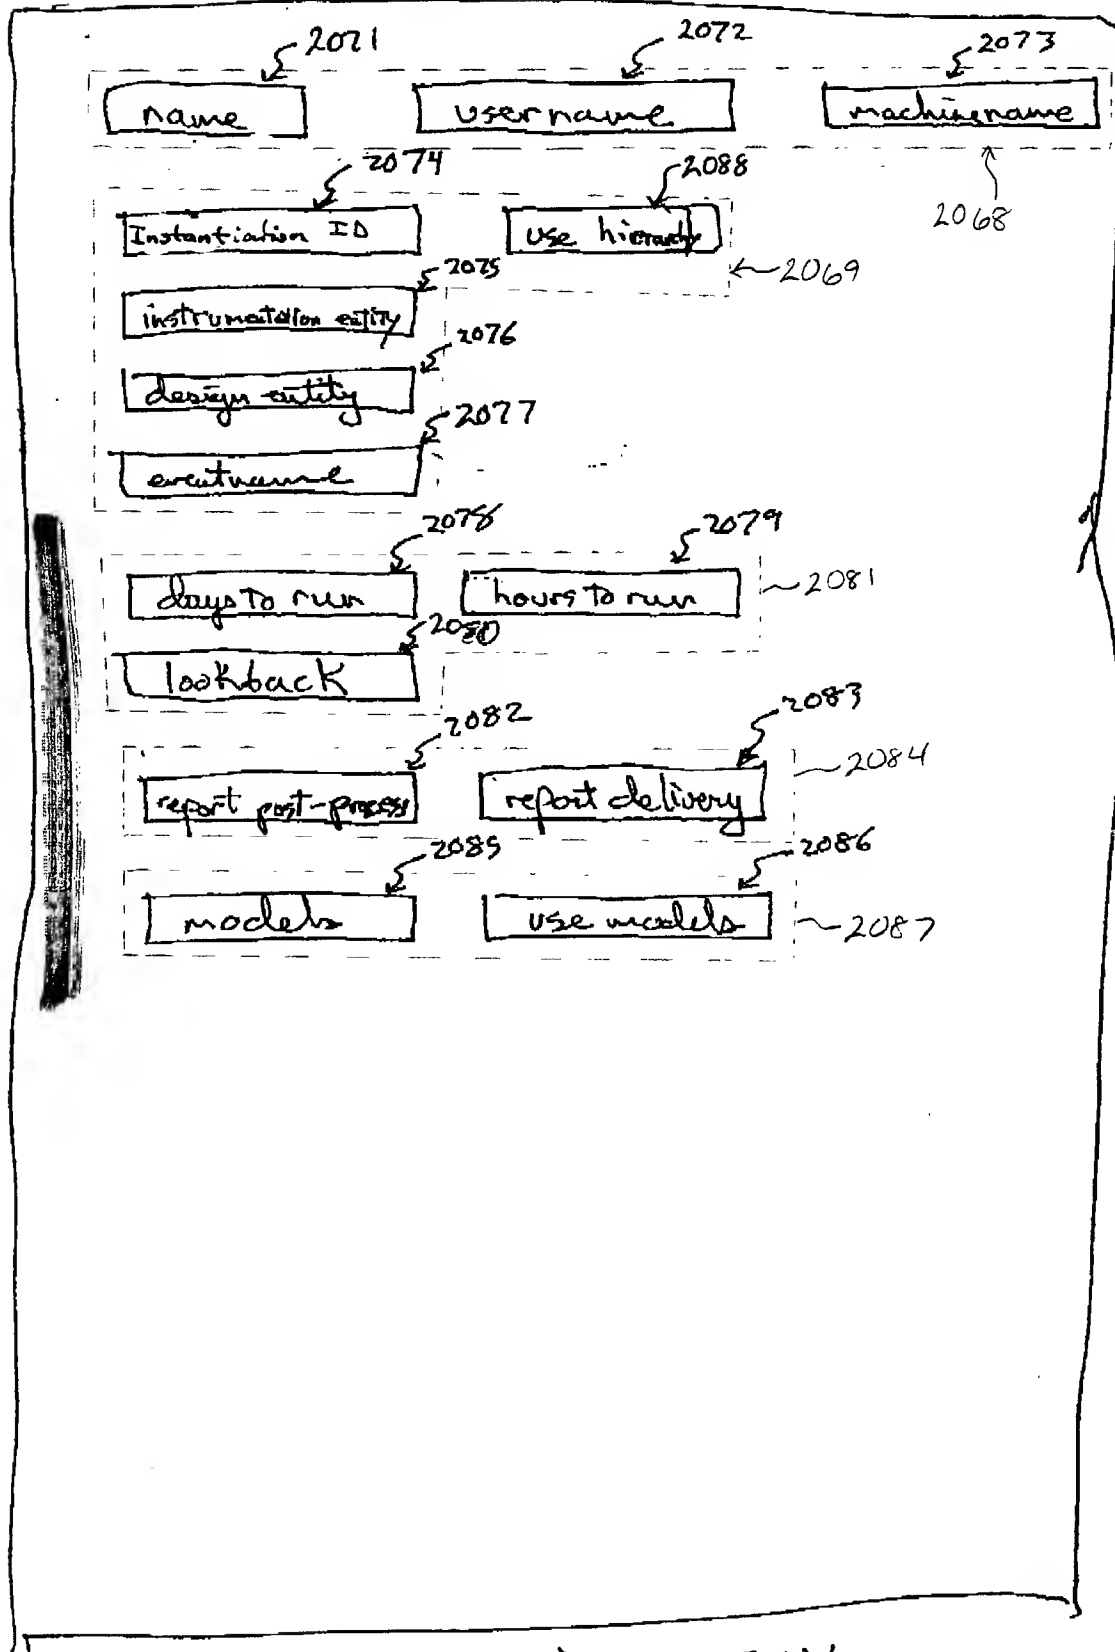 2071 2072 2073
name username machinename
2074 2088 2068
Instantiation ID use hierarchy
2075 2069
instrumentation entity
2076
design entity
2077
eventname
2078 2079
days to run hours to run 2081
2080
lookback
2082 2083
report post-process report delivery 2084
2085 2086
models use models 2087